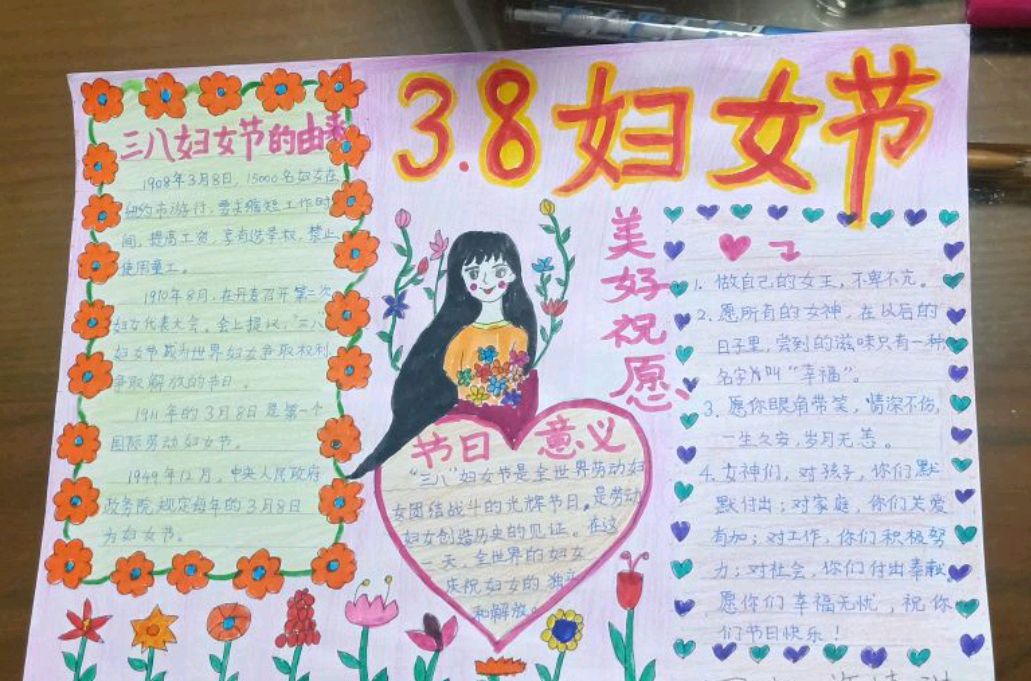 3.8妇女节
三八妇女节的由来
1908年3月8日，15000名妇女在
纽约市游行，要求缩短工作时
间，提高工资，享有选举权，禁止
使用童工。
1910年8月，在丹麦召开第二次
妇女代表大会，会上提议，"三八
妇女节成为世界妇女争取权利
争取解放的节日。
1911年的3月8日是第一个
国际劳动妇女节。
1949年12月，中央人民政府
政务院规定每年的3月8日
为妇女节。
节日意义
"三八"妇女节是全世界劳动妇
女团结战斗的光辉节日。是劳动
妇女创造历史的见证。在这
一天，全世界的妇女
庆祝妇女的独立
和解放。
美好祝愿
1. 做自己的女王，不卑不亢。
2. 愿所有的女神，在以后的
日子里，尝到的滋味只有一种
名字叫"幸福"。
3. 愿你眼角带笑，情深不伤，
一生久安，岁月无恙。
4. 女神们，对孩子，你们默
默付出；对家庭，你们关爱
有加；对工作，你们积极努
力；对社会，你们付出奉献。
愿你们幸福无忧，祝你
们节日快乐！